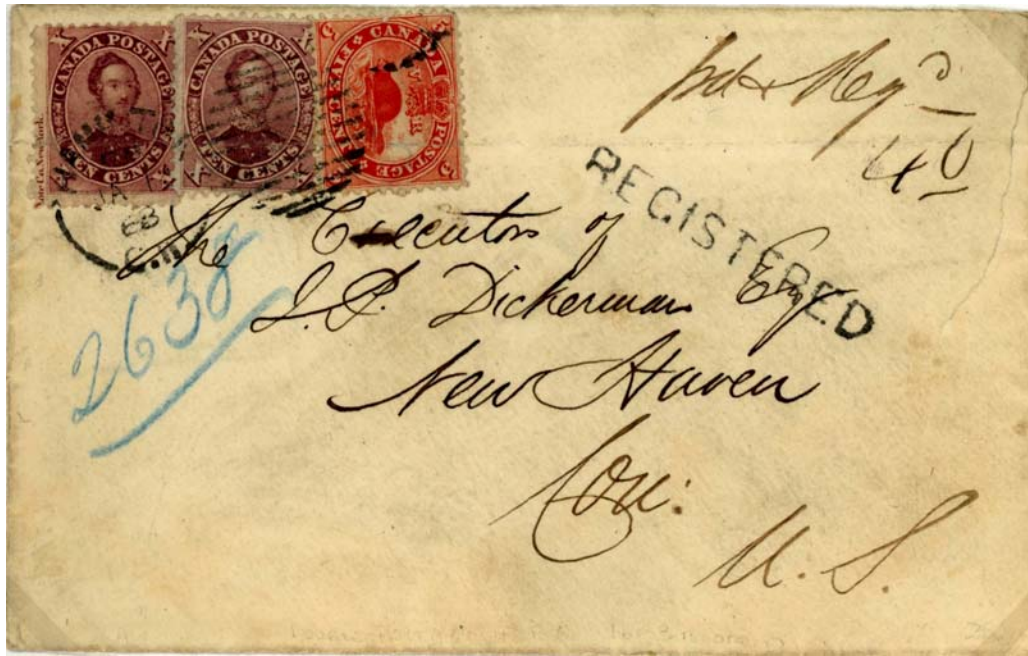 X CANADA POSTAGE X
TEN CENTS
X CANADA POSTAGE X
TEN CENTS
CANADA POSTAGE
FIVE CENTS
5 5
JA
68
pd & Regd
40
REGISTERED
The Executors of
J. P. Dickerman Esq.
New Haven
Con:
U. S.
263